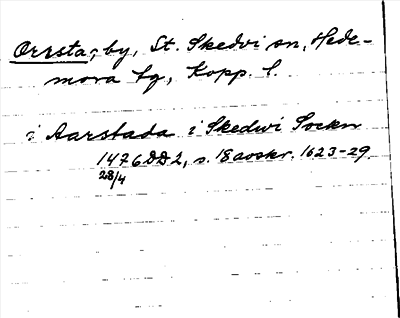 Orrsta, by, St. Skedvi sn, Hede-
mora tg, Kopp. l.
i Aarstada i Skedwi Sockn
1476 DD2, s. 18 avskr. 1623-29.
28/4